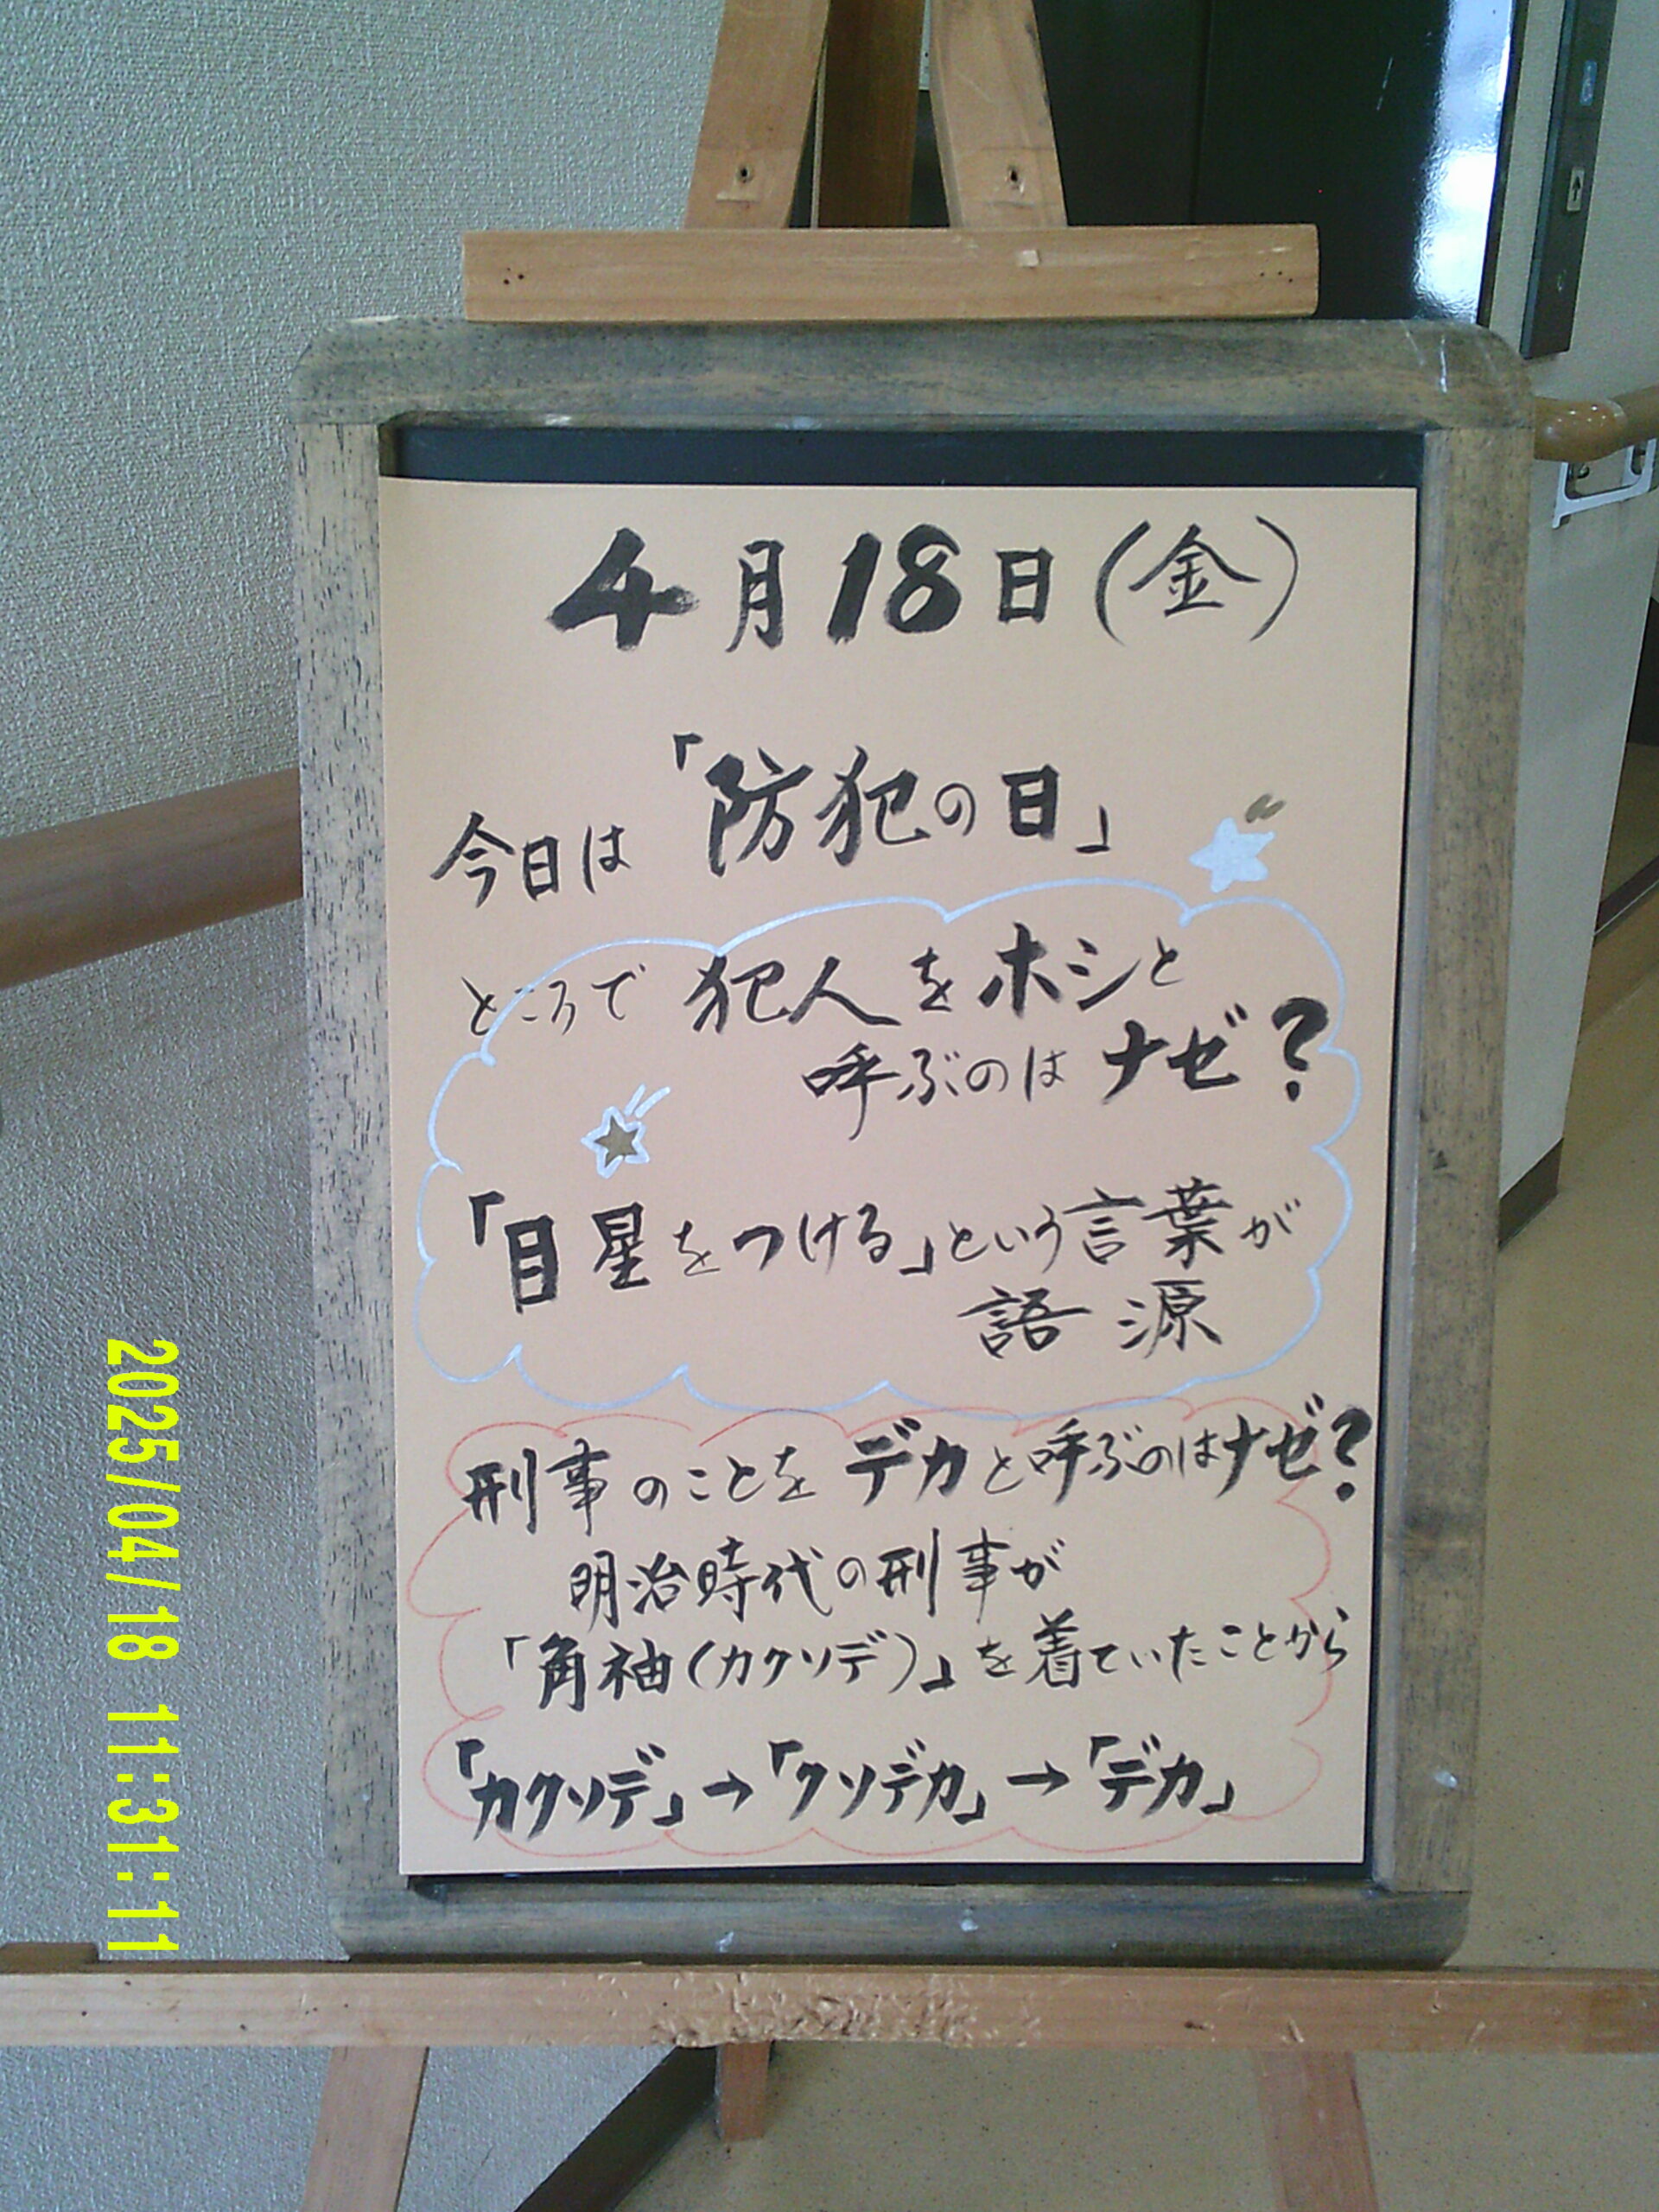 4月18日(金)
今日は「防犯の日」
ところで犯人をホシと
呼ぶのはナゼ?
「目星をつける」という言葉が
語源
刑事のことをデカと呼ぶのはナゼ?
明治時代の刑事が
「角袖(カクソデ)」を着ていたことから
「カクソデ」→「クソデカ」→「デカ」
2025/04/18 11:31:11